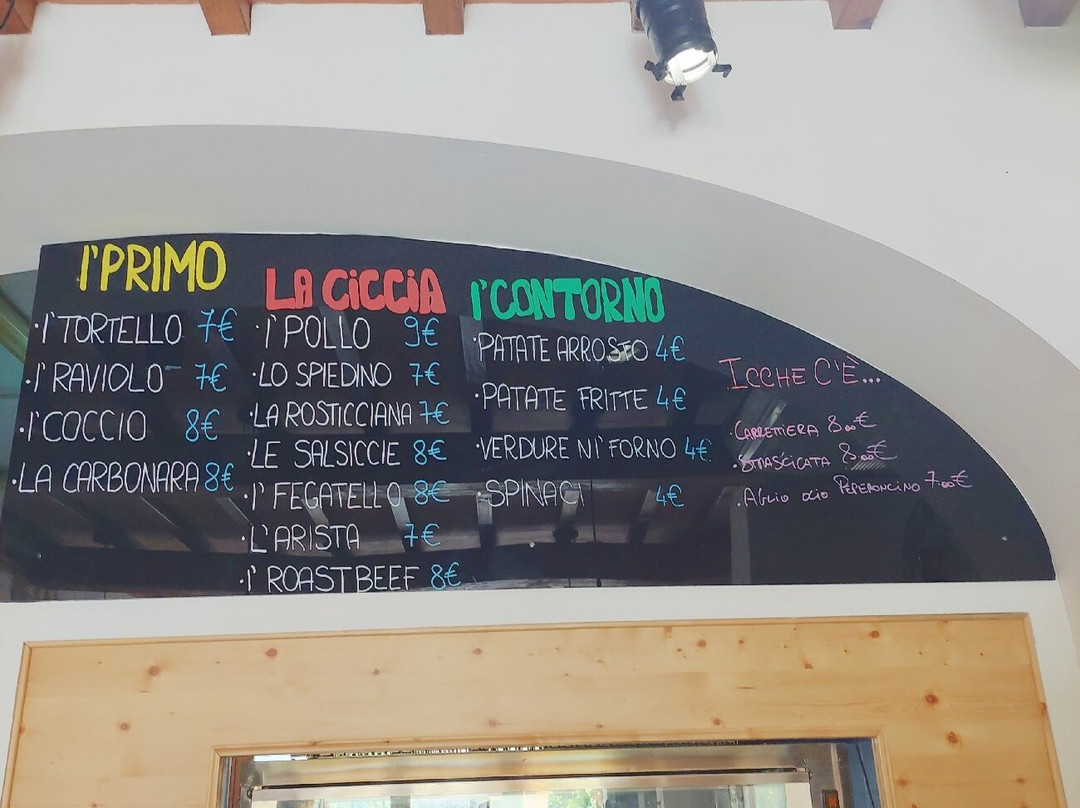 I' PRIMO
·I' TORTELLO 7€
·I' RAVIOLO 7€
·I' COCCIO 8€
·LA CARBONARA 8€
LA CiCCiA
·I' POLLO 9€
·LO SPIEDINO 7€
·LA ROSTICCIANA 7€
·LE SALSICCIE 8€
·I' FEGATELLO 8€
·L'ARISTA 7€
·I' ROASTBEEF 8€
I' CONTORNO
·PATATE ARROSTO 4€
·PATATE FRITTE 4€
·VERDURE NI' FORNO 4€
·SPINACI 4€
ICCHE C'È...
·CARRETTIERA 8.00€
·STRASCICATA 8.00€
·AGLIO OLIO PEPERONCINO 7.00€